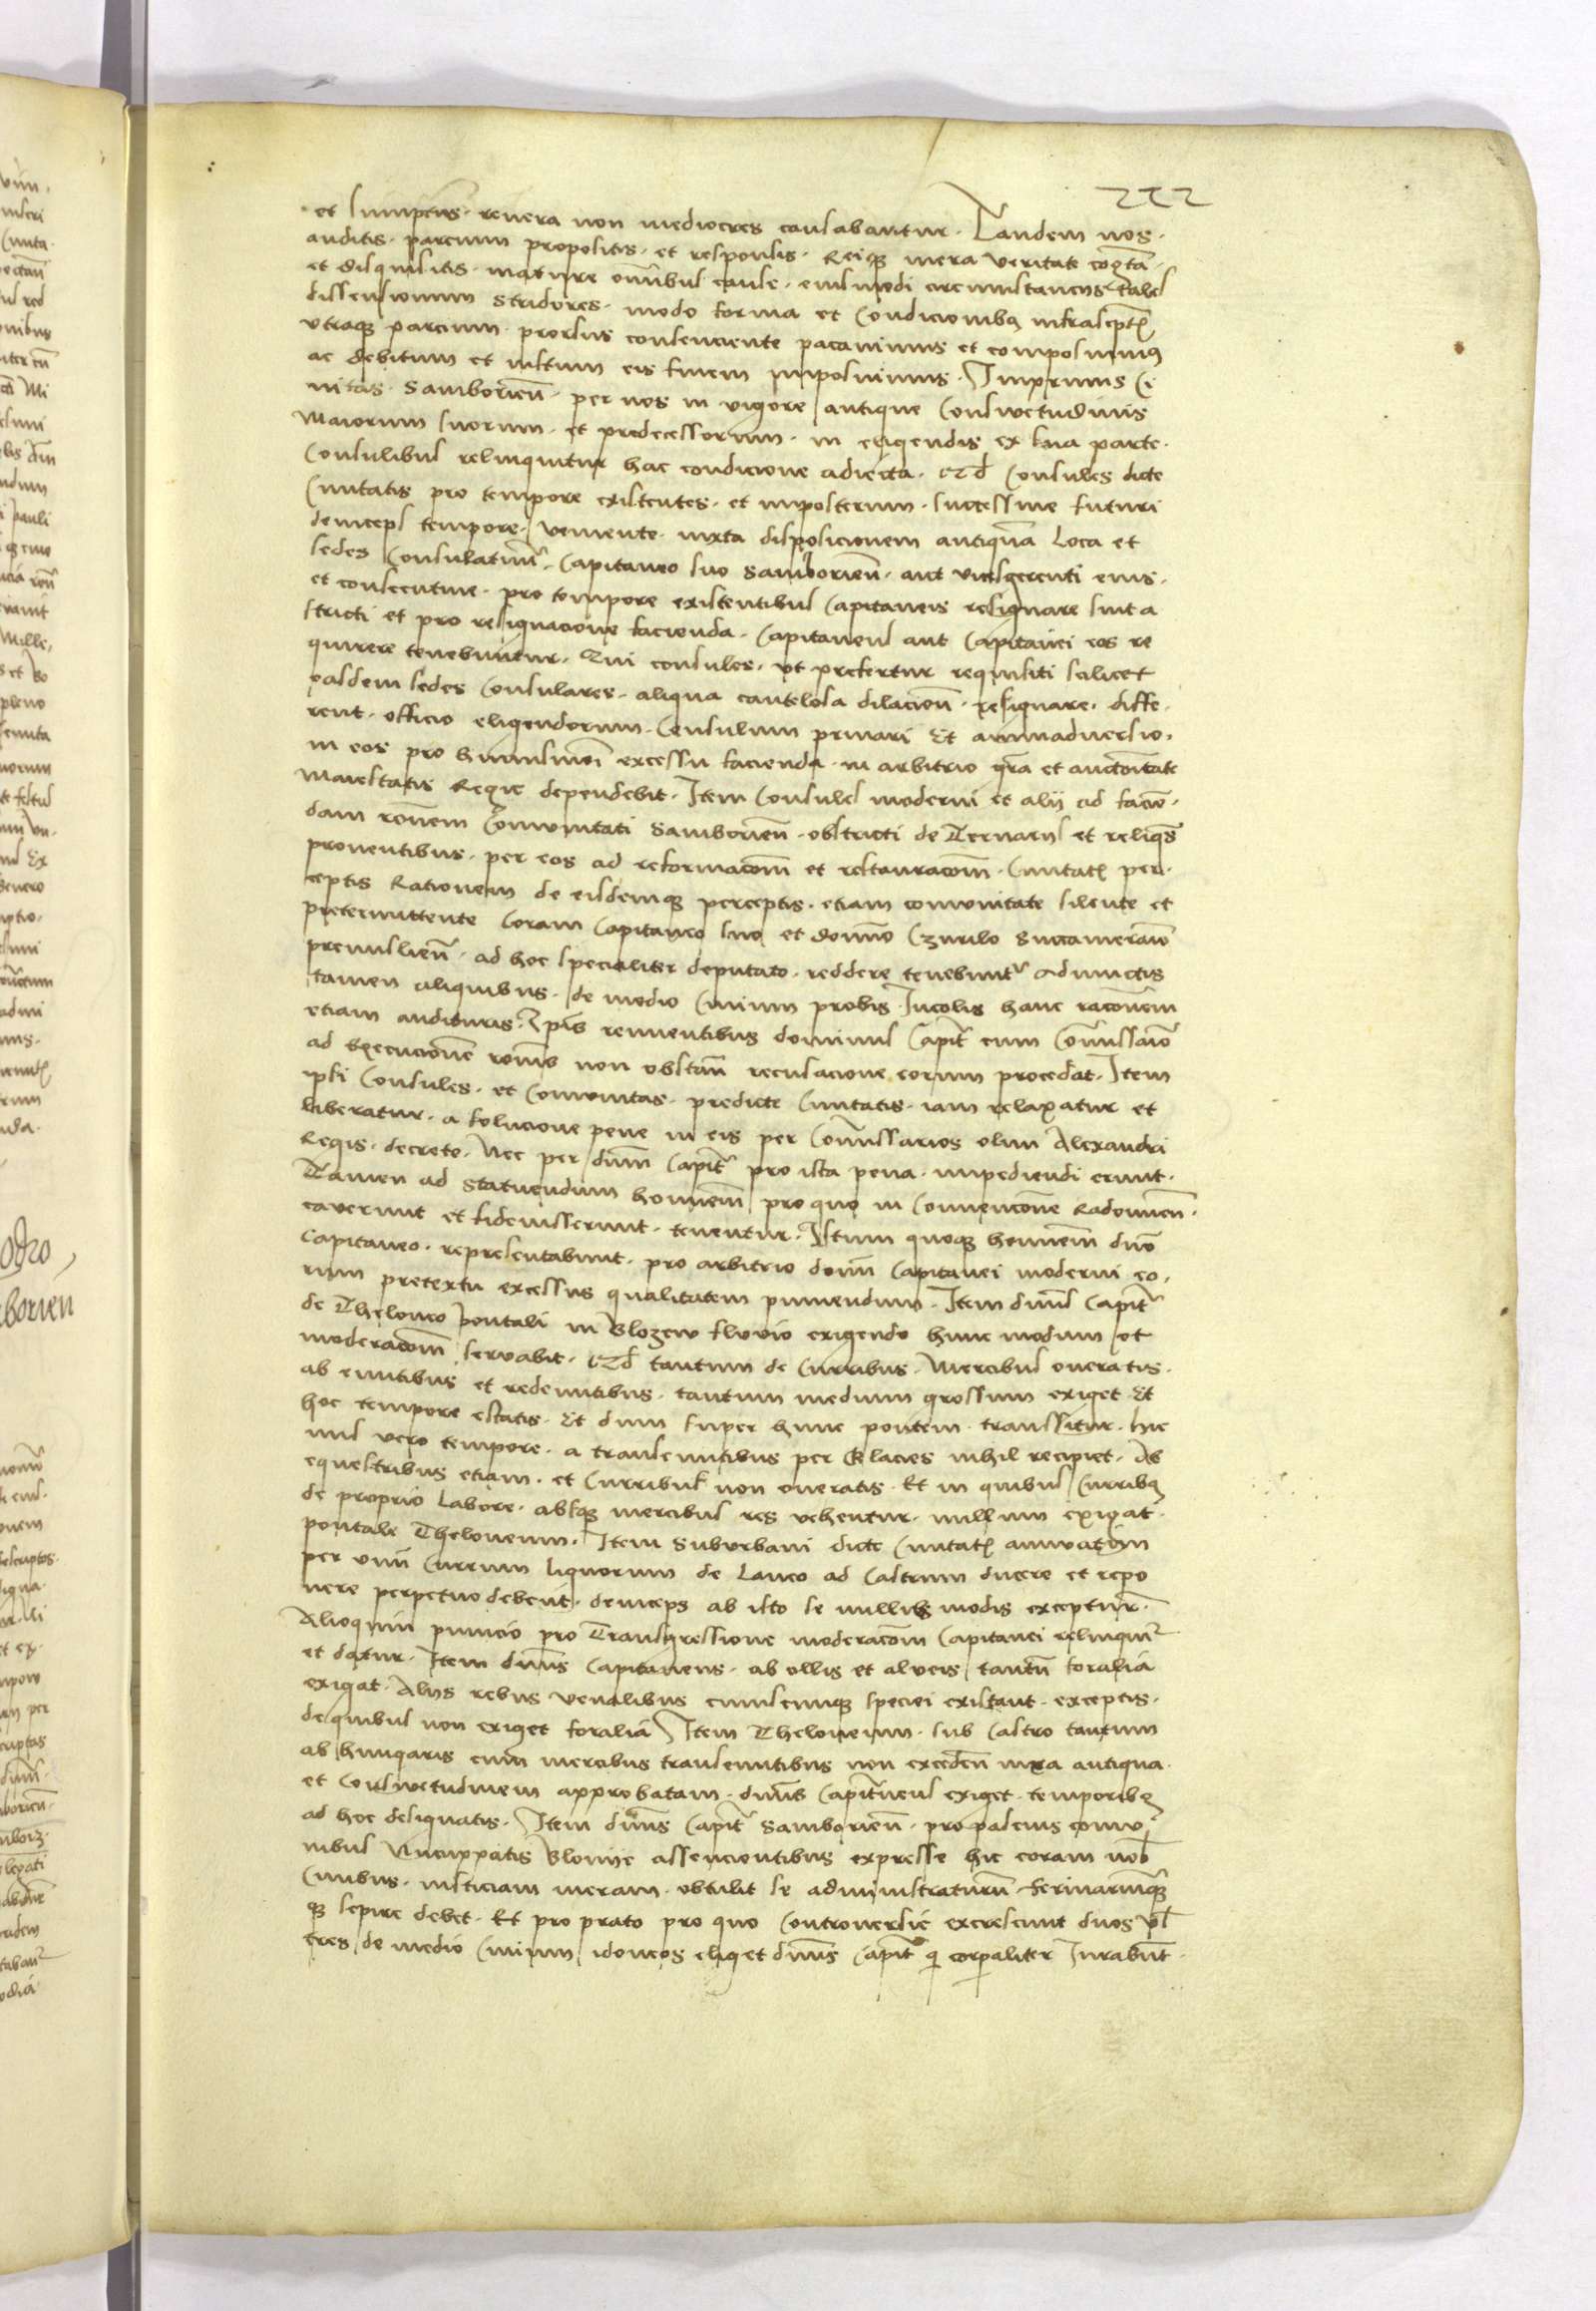 222
et sumptus revera non mediocres causabantur. Tandem nos.
auditis. parcium propositis. et responsis. Reiq3 mera veritate cognita.
et disquisitis. mature omnibus cause. eiusmodi circumstanciis tales
dissensionum stridores. modo forma et Condicionibus infrascriptis
utraq3 parcium. prorsus consenciente pacavimus et composuimus
ac debitum et iustum eis finem imposuimus. Inprimis Ci
vitas. Samborien. per nos in vigore antique Consuetudinis
Maiorum suorum. et predecessorum. in eligendis ex sua parte.
Consulibus relinquitur hac condicione adiecta. Quod Consules dicte
Civitatis pro tempore existentes. et imposterum. successive futuri
deinceps tempore. veniente. iuxta disposicionem antiquam Loca et
sedes Consulatum. Capitaneo suo Samborien. aut vicesgerenti eius.
et consecutive. pro tempore existentibus Capitaneis resignare sint a
stricti et pro resignacione facienda. Capitaneus aut Capitanei eos re
quirere tenebuntur. Qui consules. ut prefertur requisiti scilicet
easdem sedes Consulares. aliqua cautelosa dilacione. resignare. diffe.
rent. officio eligendorum. Consulum privari Et animadversio.
in eos pro huiusmodi excessu facienda. in arbitrio gra et auctoritate
Maiestatis Regie dependebit. Item Consules moderni et alii ad facien.
dam racionem Communitati Samborien. obstricti de Ternariis et reliquis
proventibus. per eos ad reformacionem et restauracionem. Civitatis per.
ceptis Rationem de eisdemq3 perceptis. etiam communitate silente et
pretermittente Coram Capitaneo suo et domino Czurilo Succamerario
premislien. ad hoc specialiter deputato. reddere tenebuntur adiunctis
tamen aliquibus. de medio Civium probis Incolis hanc racionem
etiam audituris. Ipsis renuentibus dominus Capit cum Commissario
ad Execucionem racionis non obstan recusacione eorum procedat. Item
ipsi Consules. et Communitas. predicte Civitatis. iam relaxatur et
liberatur. a solucione pene in eis per Commissarios olim Alexandri
Regis. decreto. Nec per dnm Capit pro ista pena. impediendi erunt.
Tamen ad statuendum hominem pro quo in Convencione Radomien.
caverunt et fideiusserunt. tenentur. Istum quoq3 hominem dno
Capitaneo. representabunt. pro arbitrio domini Capitanei moderni eo.
rum pretextu excessus qualitatem puniendum. Item dnus Capit
de Theloneo pontali in Blozew fluvio exigendo hunc modum et
moderacionem servabit. Quod tantum de Curribus. Mercibus oneratis.
ab euntibus et redeuntibus. tantum medium grossum exiget. Et
hoc tempore estatis. Et dum super hunc pontem. transsitur. hie
mis vero tempore. a transeuntibus per Glacies nihil recipiet. Ab
equestribus etiam. et Curribus non oneratis. Et in quibus Curribus
de proprio Labore. absq3 mercibus res vehentur. nullum exigat.
pontale Theloneum. Item Suburbani dicte Civitatis annuatim
per unum Currum lignorum de Laneo ad Castrum ducere et repo
nere perpetuo debent. deinceps ab isto se nullis modis exceptur.
Alioquin punicio pro Transgressione moderacioni Capitanei relinquitur
et datur. Item dnus Capitaneus. ab ollis et alveis tantum foralia
exigat. Aliis rebus venalibus cuiuscumq3 speciei existant. exceptis.
de quibus non exiget foralia Item Theloneum. sub Castro tantum
ab hungaris cum mercibus transeuntibus non exceden iuxta antiqua.
et Consuetudinem approbatam. dnus Capitaneus exiget. temporibus
ad hoc designatis. Item dnus Capit Samborien. pro palcius commu
nibus Nuncuppatis Blonije assencientibus expresse hic coram nob
Civibus. iusticiam meram. obtulit se administraturum
q3 sepire debet. Et pro prato pro quo Controversie excrescunt duos vel
tres de medio Civium idoneos eliget dnus Capit qi corporaliter Iurabunt.